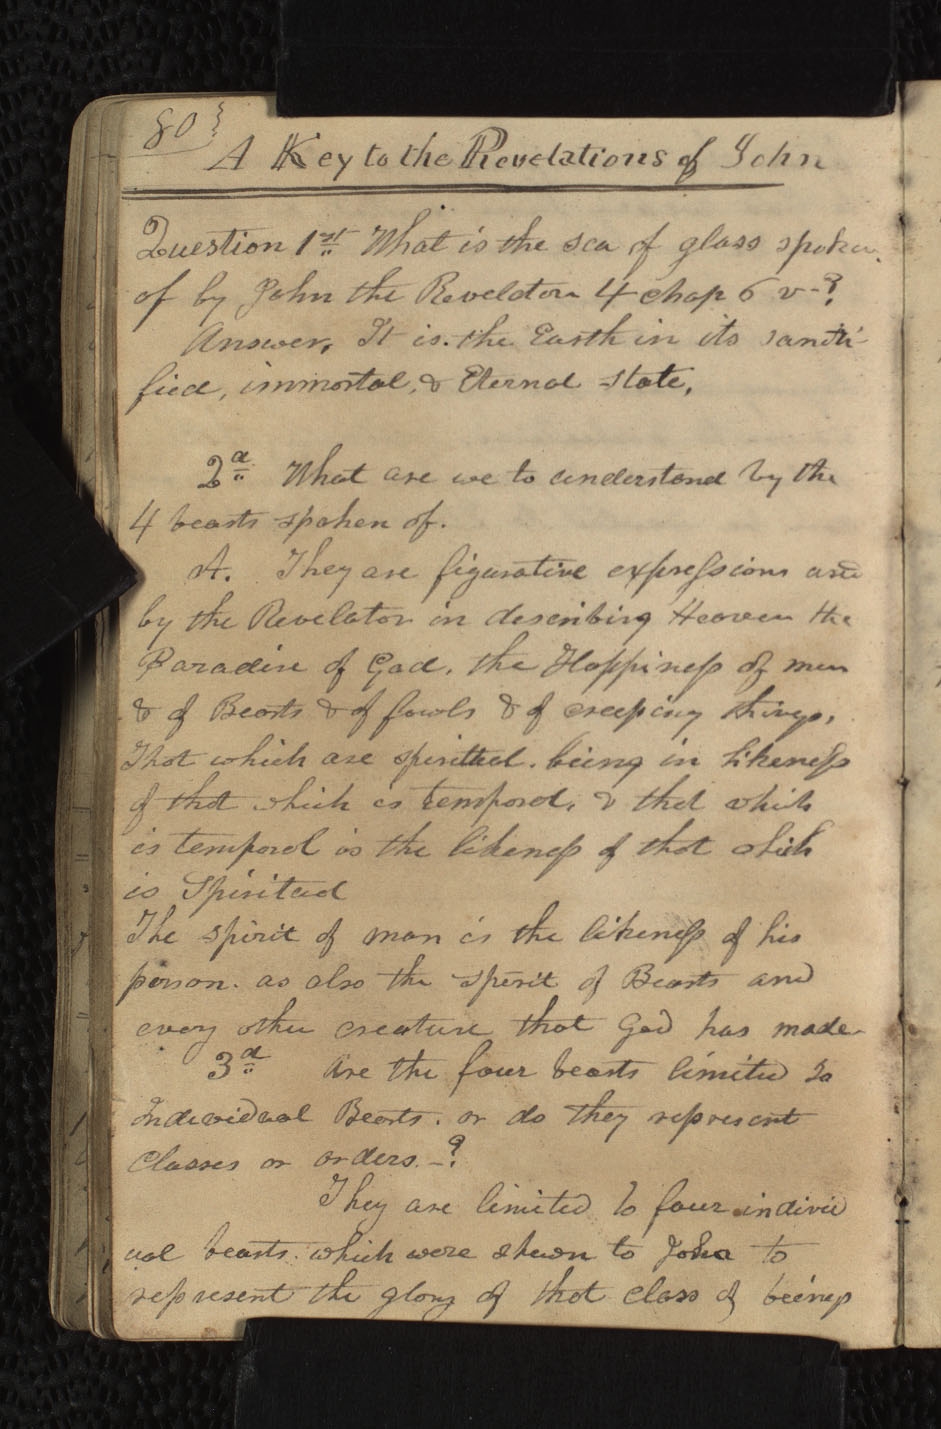 80
A Key to the Revelations of John
Question 1st What is the sea of glass spoken
of by John the Revelator 4 chap 6 v-?
Answer, It is the Earth in its sancti-
fied, immortal, & Eternal state,
2d What are we to understand by the
4 beasts spoken of.
A. They are figurative expressions used
by the Revelator in describing Heaven the
Paradise of God, the Happiness of men
& of Beasts & of fowls & of creeping things,
That which are spiritual. being in likeness
of that which is temporal, & that which
is temporal is the likeness of that which
is Spiritual
The spirit of man is the likeness of his
person. as also the spirit of Beasts and
every other creature that God has made
3d Are the four beasts limited to
Individual Beasts. or do they represent
Classes or orders-?
They are limited to four individ
ual beasts. which were shewn to John to
represent the glory of that class of beings